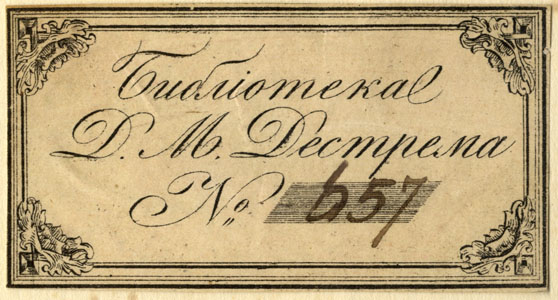 Библіотека
Д. М. Дестрема
№ 657